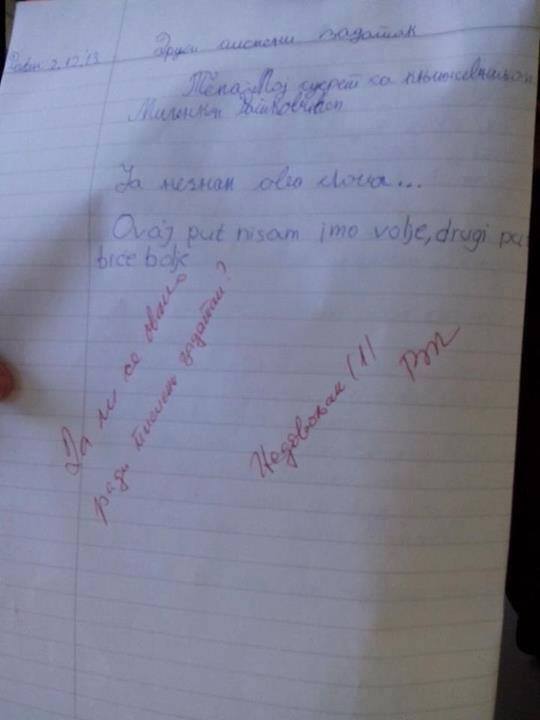 2.12.13
Други писмени задатак
Тема: Мој сусрет са књижевником
Милонки
Ја незнам ова слова...
Ovaj put nisam imo volje, drugi pu
biće bolje
Да ли се овако
ради писмени задатак?
Недовољан (1)